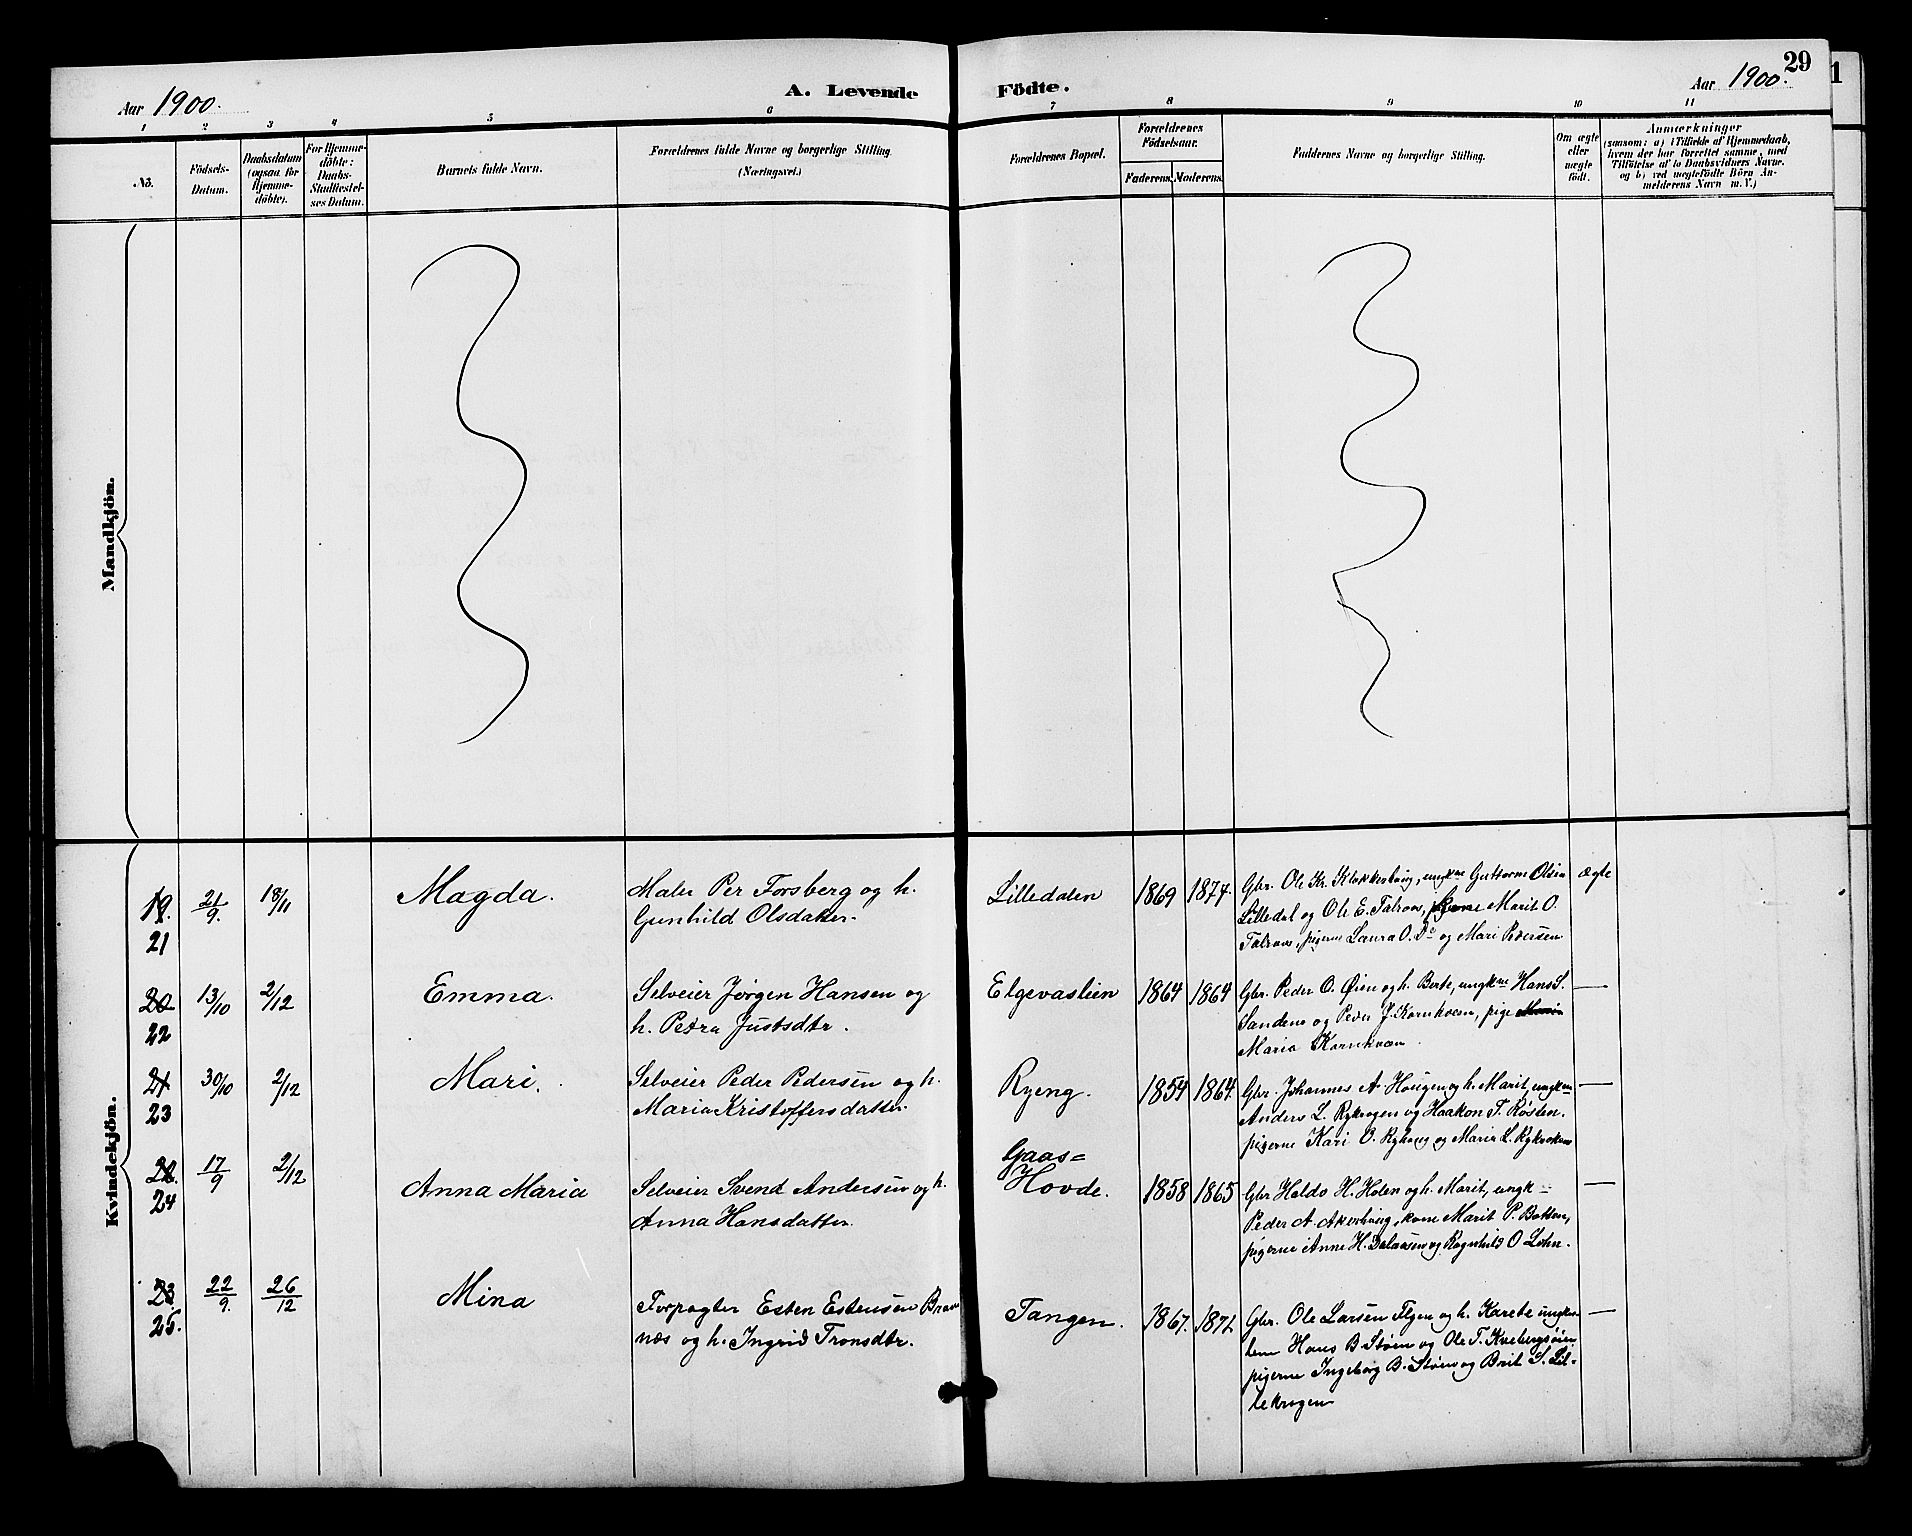 29
1
Aar 1900.
A. Levende
Födte.
Aar 1900.
1 2 3 4 5 6 7 8 9 10 11
No.
Födsels-
Datum.
Daabsdatum
(ogsaa for
Hjemme-
döbte).
For Hjemme-
döbte:
Daabs-
Stadfæstel-
ses Datum.
Barnets fulde Navn.
Forældrenes fulde Navne og borgerlige Stilling.
(Næringsvei.)
Forældrenes Bopæl.
Forældrenes
Födselsaar.
Faderens. Moderens.
Faddernes Navne og borgerlige Stilling.
Om ægte
eller
uægte
født.
Anmærkninger
(saasom: a) i Tilfælde af Hjemmedaab,
hvem der har forrettet samme, med
Tilföielse af to Daabsvidners Navne.
og b) ved uægtefödte Börn An-
melderens Navn m. V.)
Mandkjön.
Kvindekjön.
19.
21
21/9.
18/11
Magda.
Maler Per Forsberg og h.
Gunhild Olsdatter.
Lilledalen
1869
1874.
Gbr. Ole Kr. Klokkerhaug, ungkne Guttorm Olsen
Lilledal og Ole E. Talraas, Marit O.
Talraas, pigerne Laura O. Do og Mari Pedersen
Ægte
20
22
13/10
2/12
Emma.
Selveier Jørgen Hansen og
h. Petra Justsdtr.
Elgevaslien
1864
1864
Gbr. Peder O. Øien og h. Berte, ungkne Hans S.
Sandeno og Peder J. Kornhoen, pige
Maria Kornhoen.
—
21
23
30/10
2/12
Mari.
Selveier Peder Pedersen og h.
Maria Kristoffersdatter.
Ryeng.
1854
1864.
Gbr. Johannes A Hougen og h. Marit, ungkm-
Anders L. Rykrogen og Haakon T. Røsten.
pigerne Kari O. Ryhaug og Marie L. Rykroken
—
22.
24
17/9
2/12
Anna Maria
Selveier Svend Andersen og h.
Anna Hansdatter.
Gaas=
Hovde.
1858
1865
Gbr Haldo H. Holen og h. Marit, ungk-
Peder A. Akerhaug, kone Marit P. Botten,
pigerne Anne H. Dalaasen og Ragnhild O Lohn.
—
23.
25.
22/9.
26/12
Mina
Forpagter Esten Estensen Bræn
næs og h. Ingrid Tronsdtr.
Tangen.
1867.
1871.
Gbr. Ole Larsen Elgen og h. Karete ungkar
lene Hans B. Støen og Ole T. Kvebergsøien
pigerne Ingeborg B. Støen og Brit S. Lil-
lekrogen
—